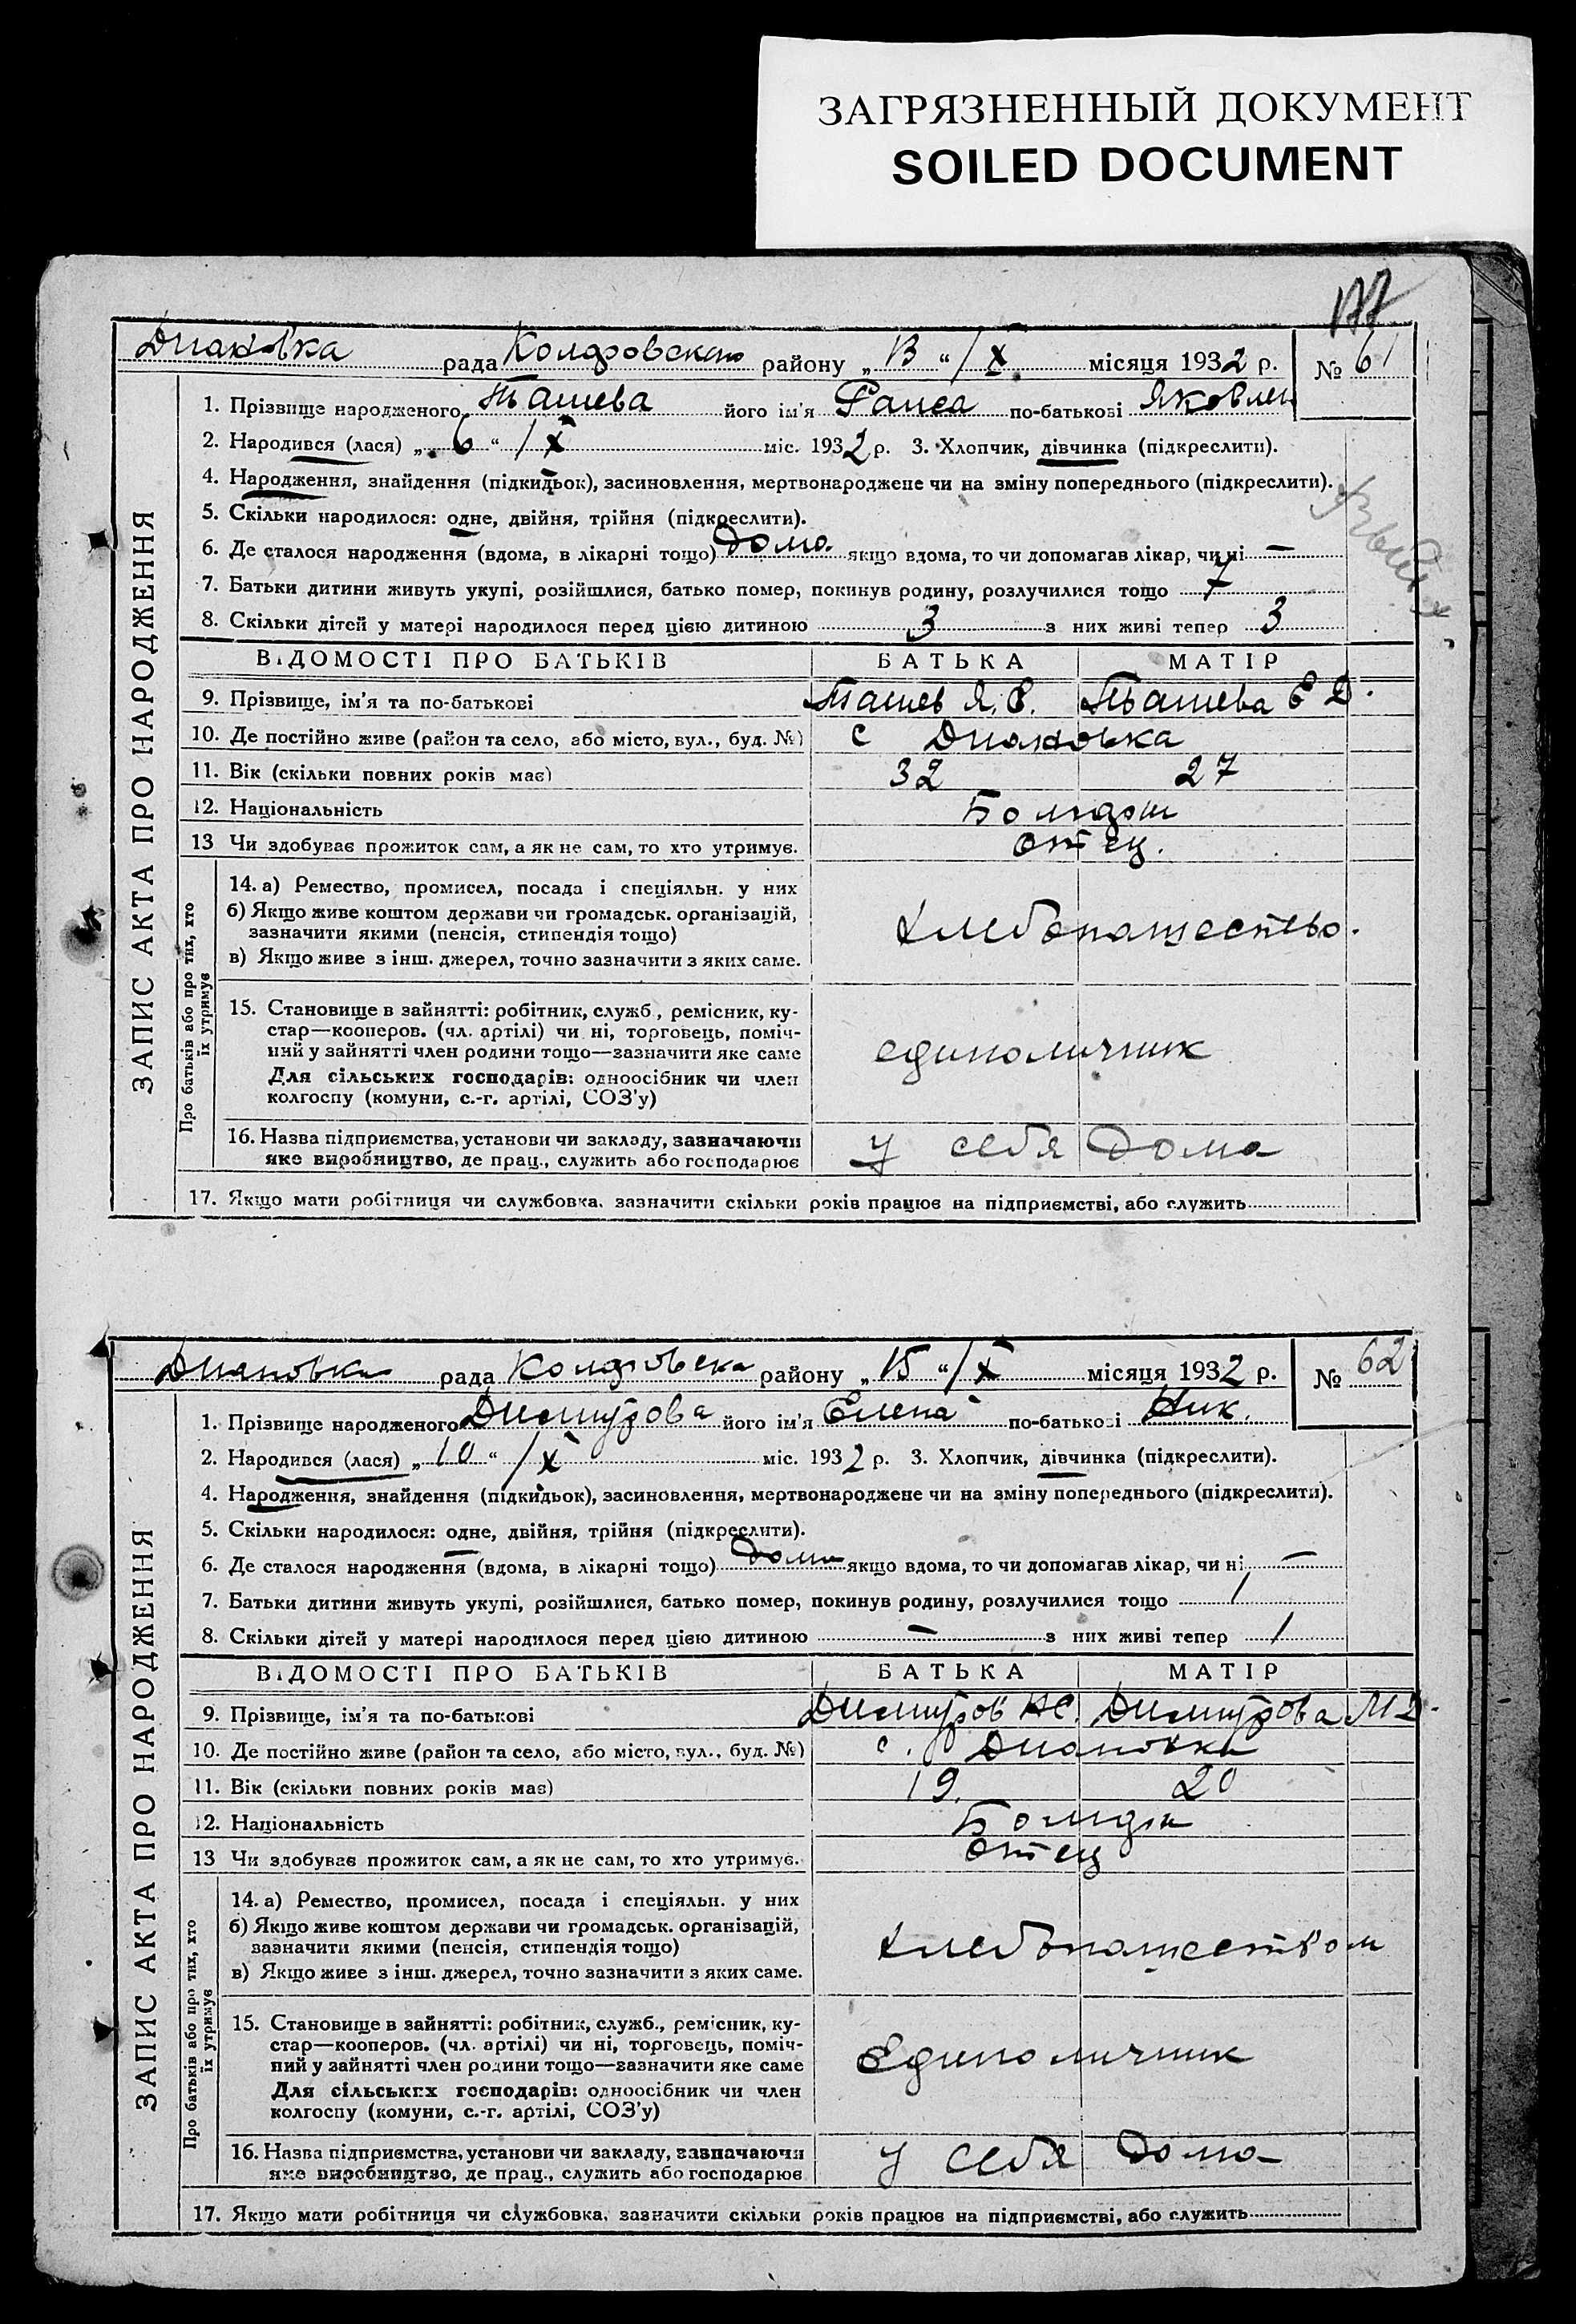 ЗАГРЯЗНЕННЫЙ ДОКУМЕНТ
SOILED DOCUMENT
177
Диановка рада Колдровская району „ 13 “ / X місяця 1932 р. № 61
ЗАПИС АКТА ПРО НАРОДЖЕННЯ
1. Прізвище народженого Ташева його ім'я Раиса по-батькові Яковлен
2. Народився (лася) „ 6 “ / X міс. 1932 р. 3. Хлопчик, дівчинка (підкреслити).
4. Народження, знайдення (підкидьок), засиновлення, мертвонароджене чи на зміну попереднього (підкреслити).
5. Скільки народилося: одне, двійня, трійня (підкреслити).
6. Де сталося народження (вдома, в лікарні тощо) дома якщо вдома, то чи допомагав лікар, чи ні —
7. Батьки дитини живуть укупі, розійшлися, батько помер, покинув родину, розлучилися тощо
8. Скільки дітей у матері народилося перед цією дитиною 3 з них живі тепер 3
ВІДОМОСТІ ПРО БАТЬКІВ БАТЬКА МАТІР
9. Прізвище, ім'я та по-батькові Ташев Я. С. Ташева Е Д.
10. Де постійно живе (район та село, або місто, вул., буд. №) с Диановка
11. Вік (скільки повних років має) 32 27
12. Національність
13 Чи здобуває прожиток сам, а як не сам, то хто утримує. отец.
Про батьків або про тих, хто їх утримує
14. а) Ремество, промисел, посада і спеціяльн. у них
б) Якщо живе коштом держави чи громадськ. організацій,
зазначити якими (пенсія, стипендія тощо) хлебопашество.
в) Якщо живе з інш. джерел, точно зазначити з яких саме.
15. Становище в зайнятті: робітник, служб., ремісник, ку-
стар—кооперов. (чл. артілі) чи ні, торговець, поміч-
ний у зайнятті член родини тощо—зазначити яке саме единоличник
Для сільських господарів: одноосібник чи член
колгоспу (комуни, с.-г. артілі, СОЗ'у)
16. Назва підприємства, установи чи закладу, зазначаючи у себя дома
яке виробництво, де прац., служить або господарює
17. Якщо мати робітниця чи службовка, зазначити скільки років працює на підприємстві, або служить
Диановка рада Колдровска району „ 15 “ / X місяця 1932 р. № 62
ЗАПИС АКТА ПРО НАРОДЖЕННЯ
1. Прізвище народженого Димитрова його ім'я Елена по-батькові Ник.
2. Народився (лася) „ 10 “ / X міс. 1932 р. 3. Хлопчик, дівчинка (підкреслити).
4. Народження, знайдення (підкидьок), засиновлення, мертвонароджене чи на зміну попереднього (підкреслити).
5. Скільки народилося: одне, двійня, трійня (підкреслити).
6. Де сталося народження (вдома, в лікарні тощо) дома якщо вдома, то чи допомагав лікар, чи ні —
7. Батьки дитини живуть укупі, розійшлися, батько помер, покинув родину, розлучилися тощо /
8. Скільки дітей у матері народилося перед цією дитиною — з них живі тепер 1
ВІДОМОСТІ ПРО БАТЬКІВ БАТЬКА МАТІР
9. Прізвище, ім'я та по-батькові Димитров НС. Димитрова М Д.
10. Де постійно живе (район та село, або місто, вул., буд. №) с. Диановка
11. Вік (скільки повних років має) 19. 20
12. Національність
13 Чи здобуває прожиток сам, а як не сам, то хто утримує. отец
Про батьків або про тих, хто їх утримує
14. а) Ремество, промисел, посада і спеціяльн. у них
б) Якщо живе коштом держави чи громадськ. організацій,
зазначити якими (пенсія, стипендія тощо) хлебопашеством
в) Якщо живе з інш. джерел, точно зазначити з яких саме.
15. Становище в зайнятті: робітник, служб., ремісник, ку-
стар—кооперов. (чл. артілі) чи ні, торговець, поміч-
ний у зайнятті член родини тощо—зазначити яке саме Единоличник
Для сільських господарів: одноосібник чи член
колгоспу (комуни, с.-г. артілі, СОЗ'у)
16. Назва підприємства, установи чи закладу, зазначаючи у себя дома
яке виробництво, де прац., служить або господарює
17. Якщо мати робітниця чи службовка, зазначити скільки років працює на підприємстві, або служить